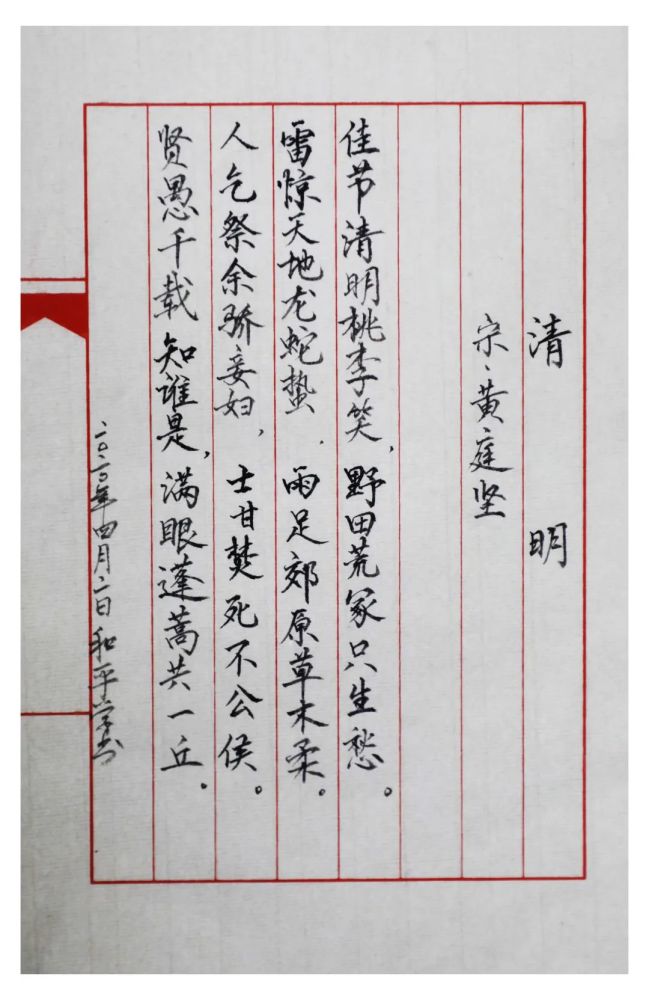 清 明
宋·黄庭坚
佳节清明桃李笑，野田荒冢只生愁。
雷惊天地龙蛇蛰，雨足郊原草木柔。
人乞祭余骄妾妇，士甘焚死不公侯。
贤愚千载知谁是，满眼蓬蒿共一丘。
二〇二〇年四月二日和平学书